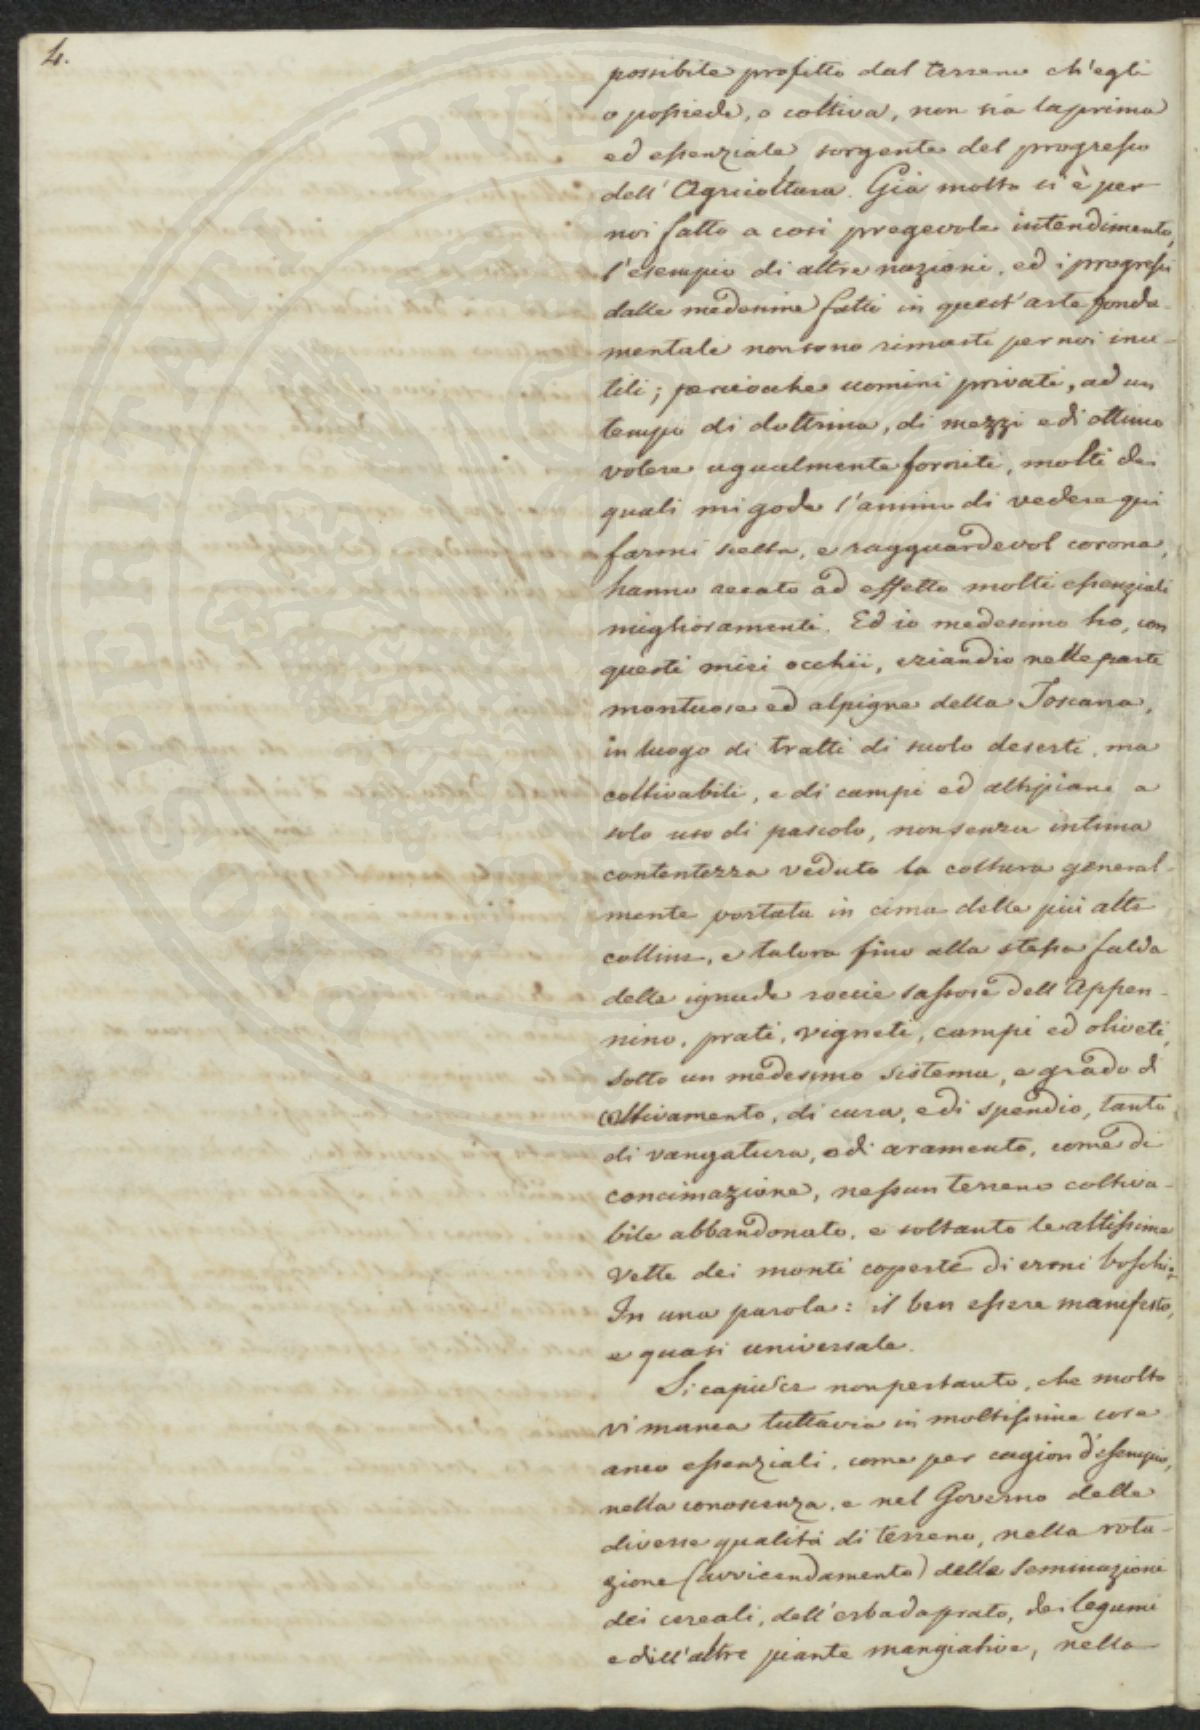 4.
possibile profitto dal terreno ch'egli
o possiede, o coltiva, non sia la prima
ed essenziale sorgente del progresso
dell'Agricoltura. Già molto si è per
noi fatto a così pregevole intendimento,
l'esempio di altre nazioni, ed i progressi
dalle medesime fatti in quest'arte fonda-
mentale non sono rimasti per noi inu-
tili; perciocche uomini privati, ad un
tempo di dottrina, di mezzi e di ottimo
volere ugualmente forniti, molti dei
quali mi gode l'animo di vedere qui
farmi scelta, e ragguardevol corona,
hanno recato ad effetto molti essenziali
miglioramenti. Ed io medesimo ho, con
questi miei occhii, eziandio nelle parte
montuose ed alpigne della Toscana,
in luogo di tratti di suolo deserti, ma
coltivabili, e di campi ed altipiani a
solo uso di pascolo, non senza intima
contentezza veduto la coltura general-
mente portata in cima delle più alte
colline, e talora fino alla stessa falda
delle ignude roccie sassose dell'Appen-
nino, prati, vigneti, campi ed oliveti,
sotto un medesimo sistema, e grado di
coltivamento, di cura, e di spendio, tanto
di vangatura, e di aramento, come di
concimazione, nessun terreno coltiva-
bile abbandonato, e soltanto le altissime
vette dei monti coperte di ermi boschi.
In una parola: il ben essere manifesto,
e quasi universale.
Si capisce nonpertanto, che molto
vi manca tuttavia in moltissime cose
anco essenziali, come per cagion d'esempio,
nella conoscenza, e nel Governo delle
diverse qualità di terreno, nella rota-
zione (avvicendamento) delle seminazioni
dei cereali, dell'erba da prato, dei legumi
e dell'altre piante mangiative, nella